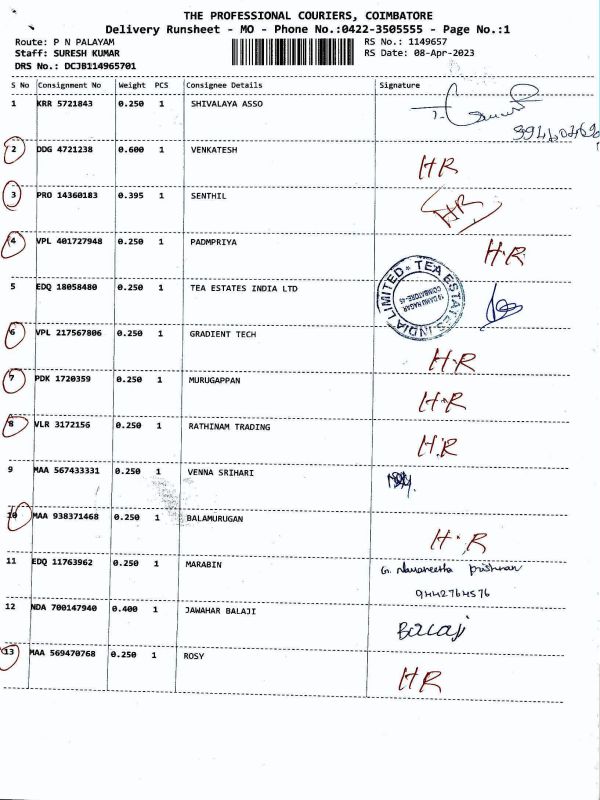 THE PROFESSIONAL COURIERS, COIMBATORE
Delivery Runsheet - MO - Phone No.:0422-3505555 - Page No.:1
Route: P N PALAYAM RS No.: 1149657
Staff: SURESH KUMAR RS Date: 08-Apr-2023
DRS No.: DCJB114965701
S No Consignment No Weight PCS Consignee Details Signature
1 KRR 5721843 0.250 1 SHIVALAYA ASSO
2 DDG 4721238 0.600 1 VENKATESH HR
3 PRO 14360183 0.395 1 SENTHIL HR
4 VPL 401727948 0.250 1 PADMPRIYA H.R
5 EDQ 18058480 0.250 1 TEA ESTATES INDIA LTD
TEA ESTATES INDIA LIMITED
COIMBATORE-
6 VPL 217567806 0.250 1 GRADIENT TECH H.R
7 PDK 1720359 0.250 1 MURUGAPPAN H.R
8 VLR 3172156 0.250 1 RATHINAM TRADING H.R
9 MAA 567433331 0.250 1 VENNA SRIHARI
10 MAA 938371468 0.250 1 BALAMURUGAN H.R
11 EDQ 11763962 0.250 1 MARABIN G.
9442764576
12 NDA 700147940 0.400 1 JAWAHAR BALAJI Balaji
13 MAA 569470768 0.250 1 ROSY HR